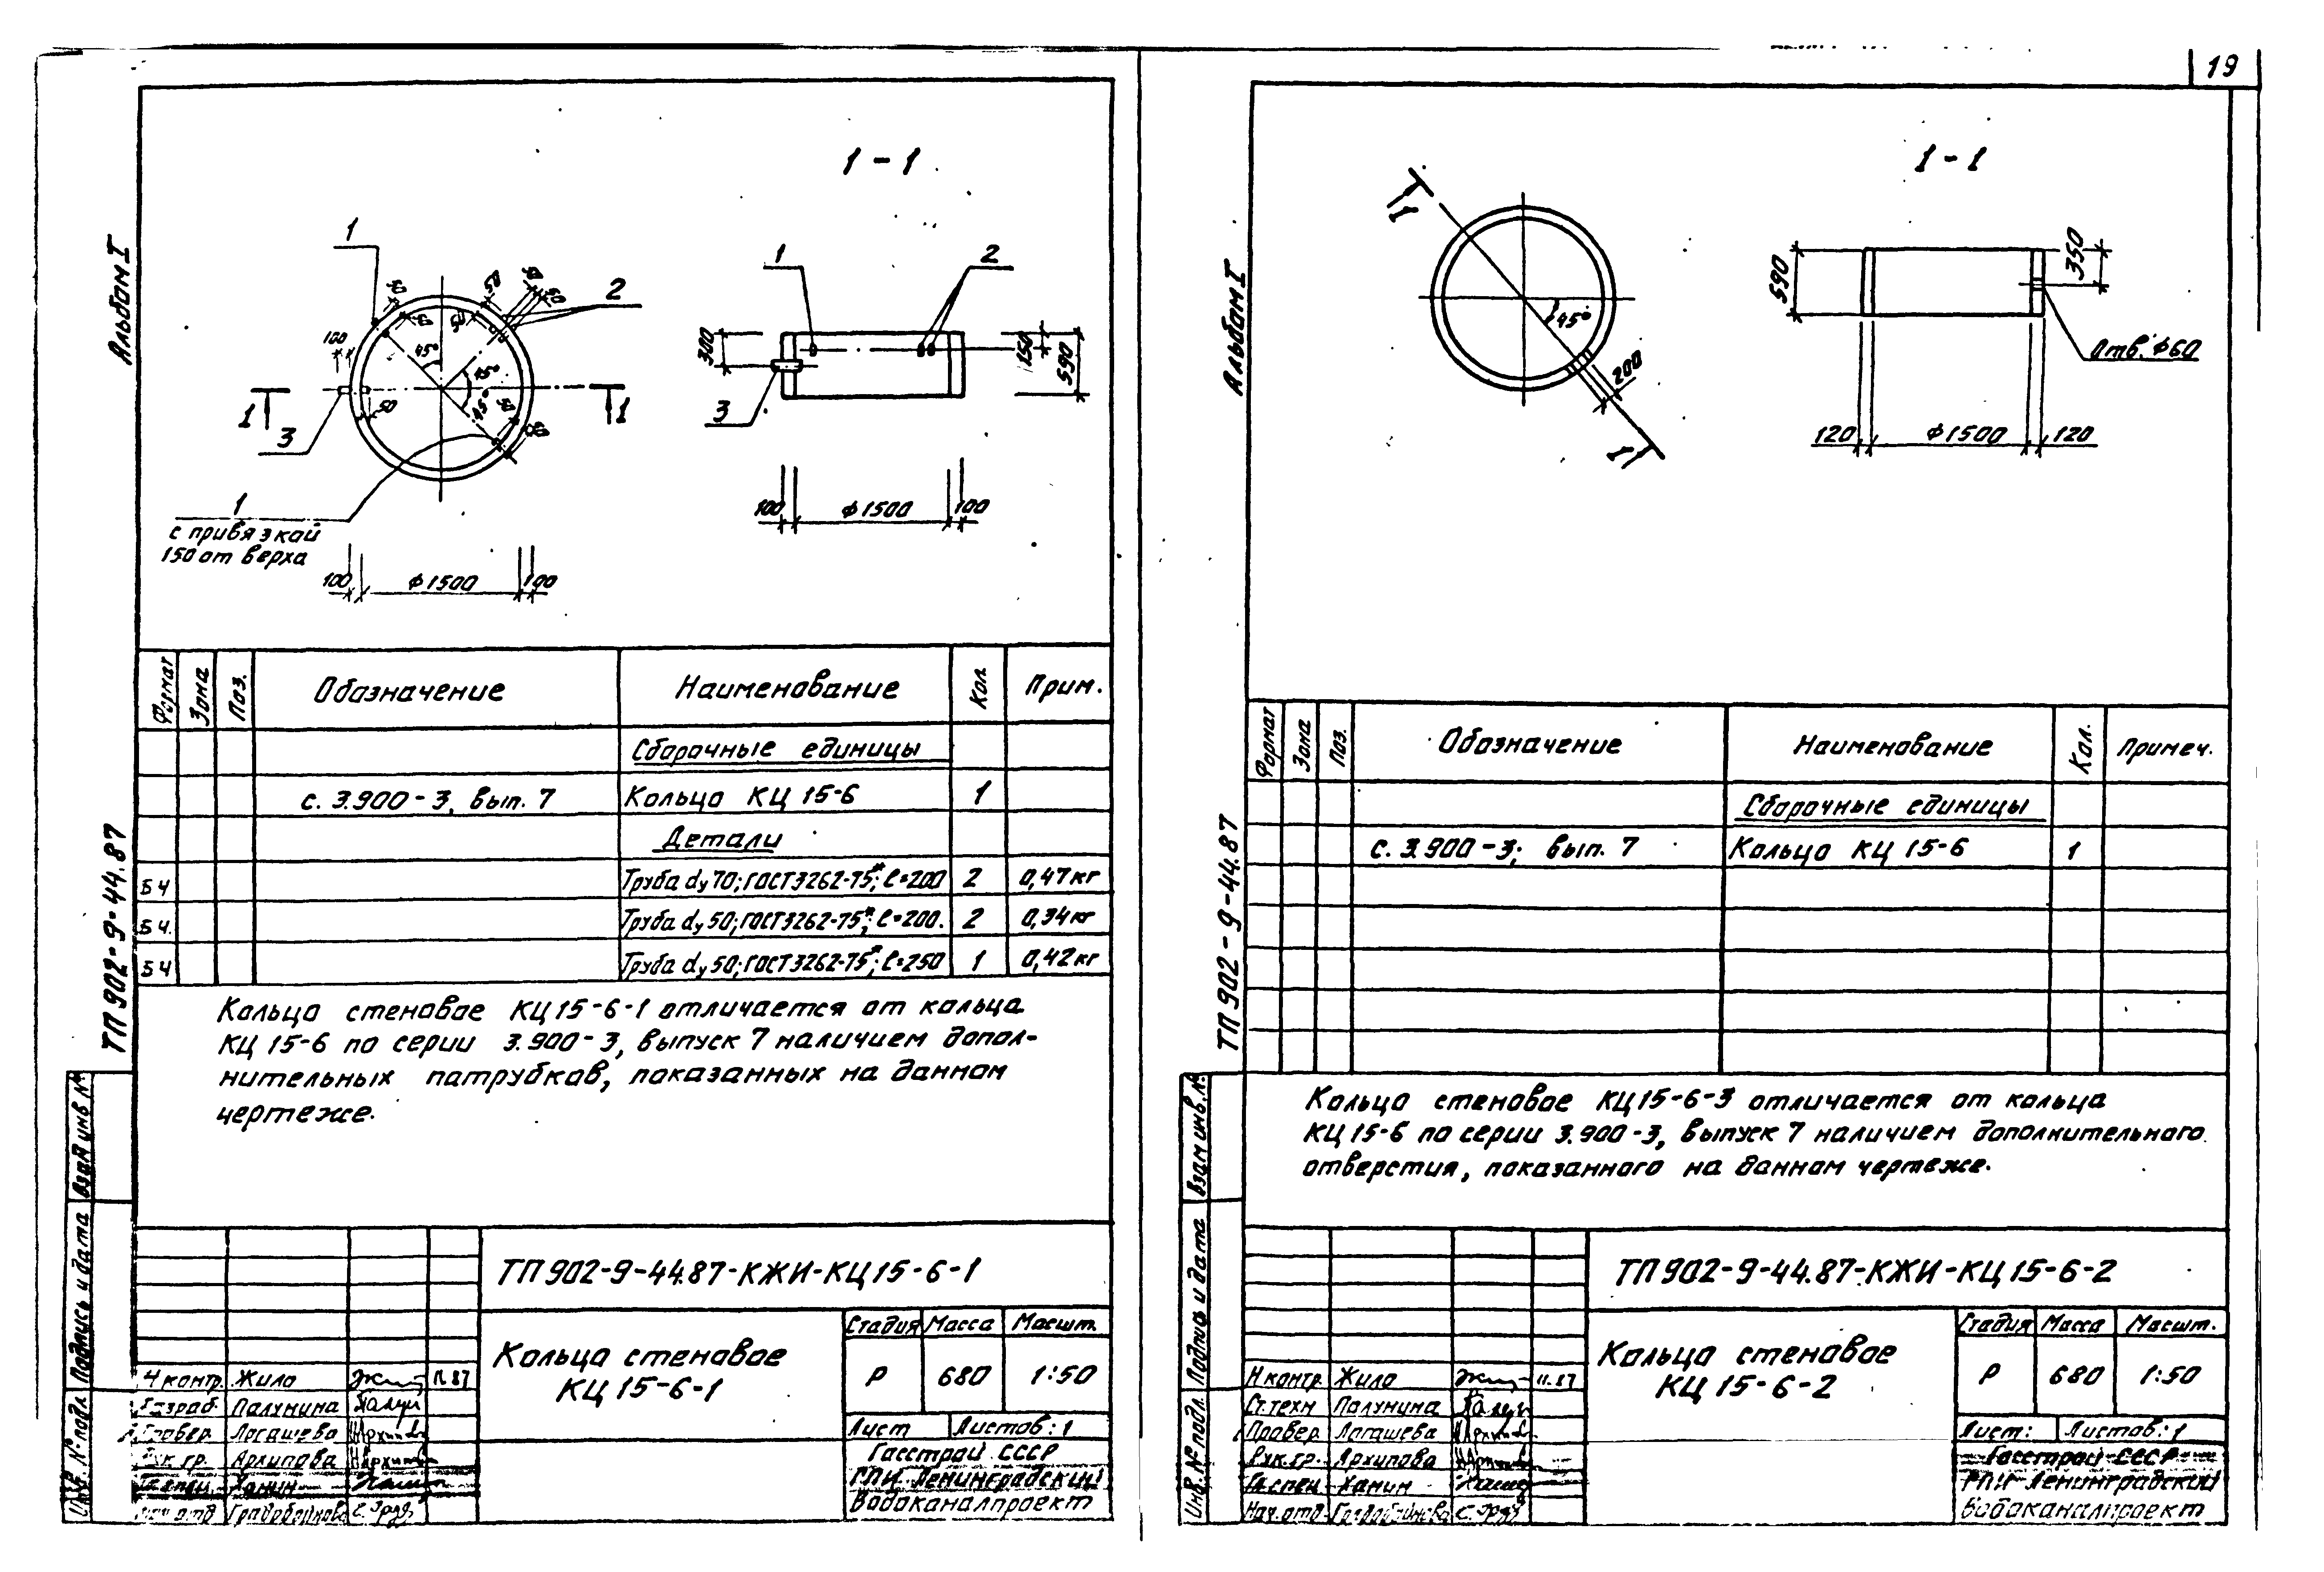 19
Альбом I
ТП 902-9-44.87
Взам инв №
Подпись и дата
Инв. № подл.
1-1
1
2
3
50
60
100
45°
45°
45°
50
1
1
1
с привязкой
150 от верха
100 ϕ1500 100
1
2
3
300
150
590
100 ϕ1500 100
Формат Зона Поз. Обозначение Наименование Кол Прим.
Сборочные единицы
с. 3.900-3, вып. 7 Кольцо КЦ 15-6 1
Детали
БЧ Труба dу 70; ГОСТ 3262-75*; ℓ=200 2 0,47кг
БЧ. Труба dу 50; ГОСТ 3262-75*; ℓ=200. 2 0,34кг
БЧ Труба dу 50; ГОСТ 3262-75*; ℓ=250 1 0,42кг
Кольцо стеновое КЦ 15-6-1 отличается от кольца
КЦ 15-6 по серии 3.900-3, выпуск 7 наличием допол-
нительных патрубков, показанных на данном
чертеже.
ТП 902-9-44.87-КЖИ-КЦ 15-6-1
Кольцо стеновое
КЦ 15-6-1
Стадия Масса Масшт.
Р 680 1:50
Лист Листов: 1
Госстрой СССР
ГПИ Ленинградский
Водоканалпроект
Н контр. Жило 11.87
Разраб. Палунина
Провер. Логашева
Рук. гр. Архипова
Гл. спец. Ханин
Нач. отд
Альбом I
ТП 902-9-44.87
Взам инв. №
Подпись и дата
Инв. № подл.
1-1
1
1
45°
200
590
350
Отв. ϕ60
120 ϕ1500 120
Формат Зона Поз. Обозначение Наименование Кол. Примеч.
Сборочные единицы
с. 3.900-3; вып. 7 Кольцо КЦ 15-6 1
Кольцо стеновое КЦ 15-6-3 отличается от кольца
КЦ 15-6 по серии 3.900-3, выпуск 7 наличием дополнительного
отверстия, показанного на данном чертеже.
ТП 902-9-44.87-КЖИ-КЦ 15-6-2
Кольцо стеновое
КЦ 15-6-2
Стадия Масса Масшт.
Р 680 1:50
Лист: Листов: 1
Госстрой СССР
ГПИ Ленинградский
Водоканалпроект
Н контр. Жило 11.87
Ст. техн Палунина
Провер. Логашева
Рук. гр. Архипова
Гл. спец Ханин
Нач. отд